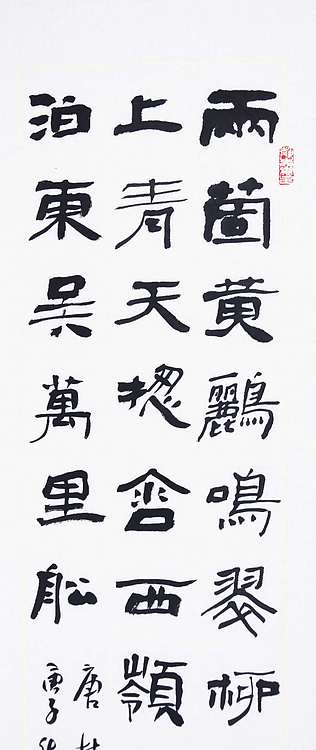 兩箇黄鸝鳴翠柳
上青天牎含西嶺
泊東吳萬里舩
唐
庚子